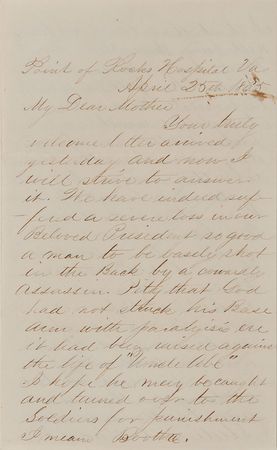 Point of Rocks Hospital Va
April 25th 1865
My Dear Mother
Your truly
welcome letter arrived
yesterday and now I
will strive to answer
it. We have indeed suf-
fered a severe loss in our
Beloved President so good
a man to be basely shot
in the Back by a cowardly
assassin. Pity that God
had not struck his Base
arm with paralysis ere
it had been raised against
the life of "Uncle Abe"
I hope he may be caught
and turned over to the
Soldiers for punishment
I mean Boothe.